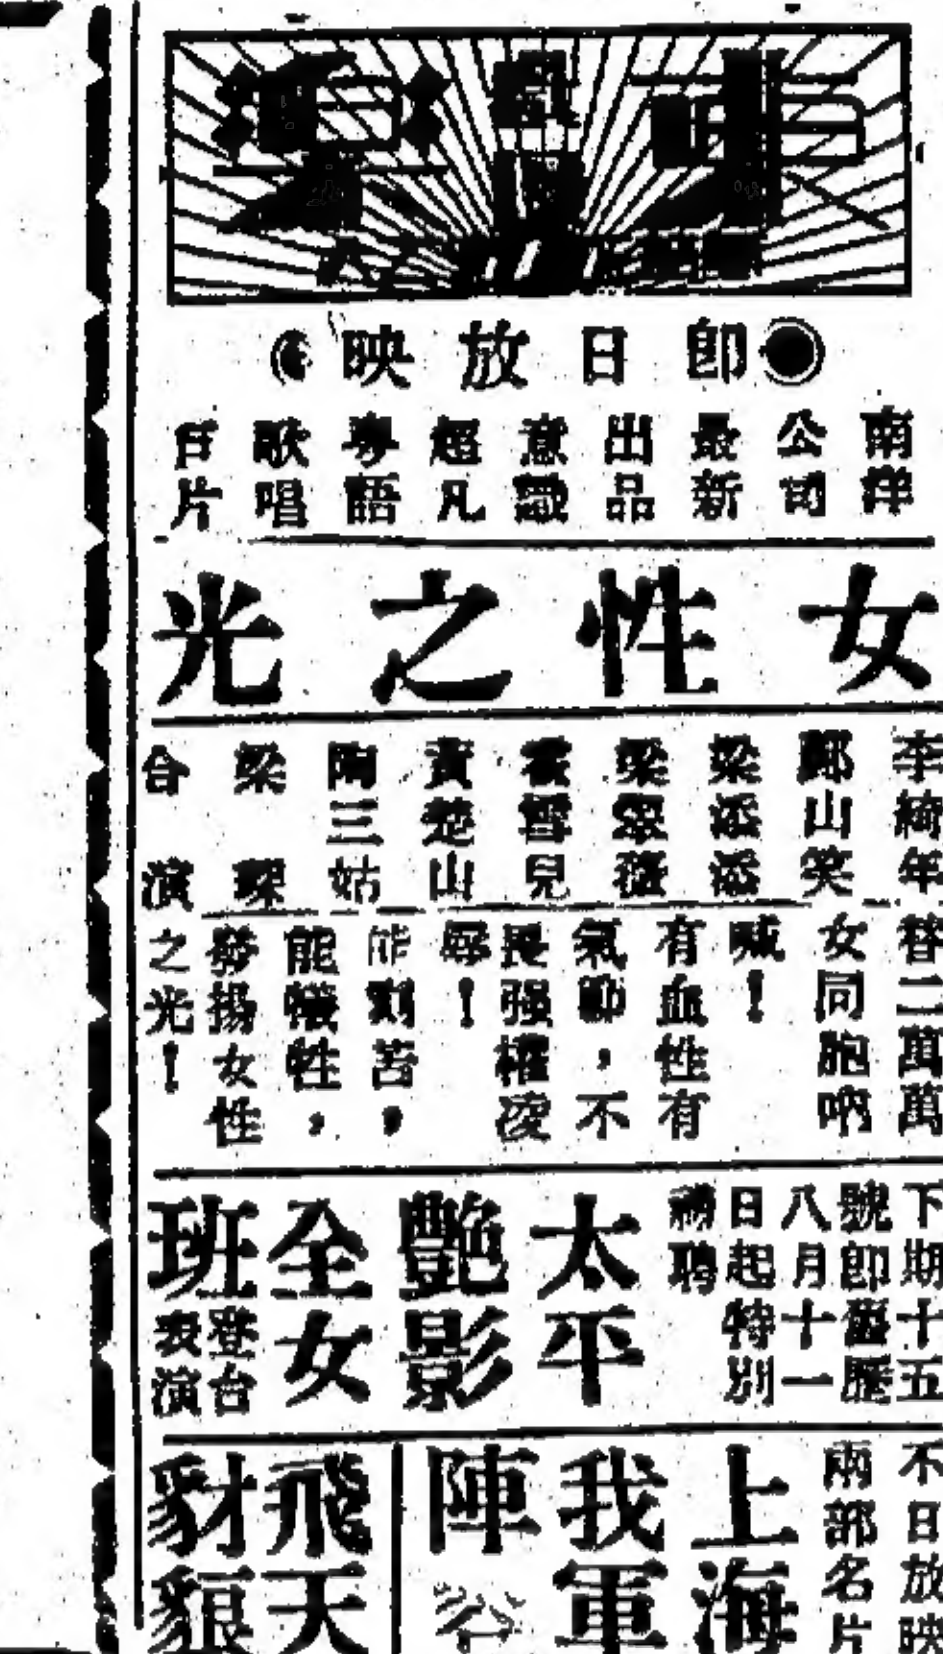 東
樂
戲
院
即日放映
南洋
公司
最新
出品
意識
超凡
粵語
歌唱
巨片
女性之光
李綺年
鄺山笑
梁添添
梁翠薇
霍雪兒
黃楚山
陶三姑
梁琛
合演
替二萬萬
女同胞吶
喊！
有血性有
氣節，不
畏强權凌
辱！
能刻苦，
能犧牲，
發揚女性
之光！
下期十五
號即舊歷
八月十一
日起特別
禮聘
太平
艷影
全女
班
登台
表演
不日放映
兩部名片
上海
我軍
陣
飛天
豺狼